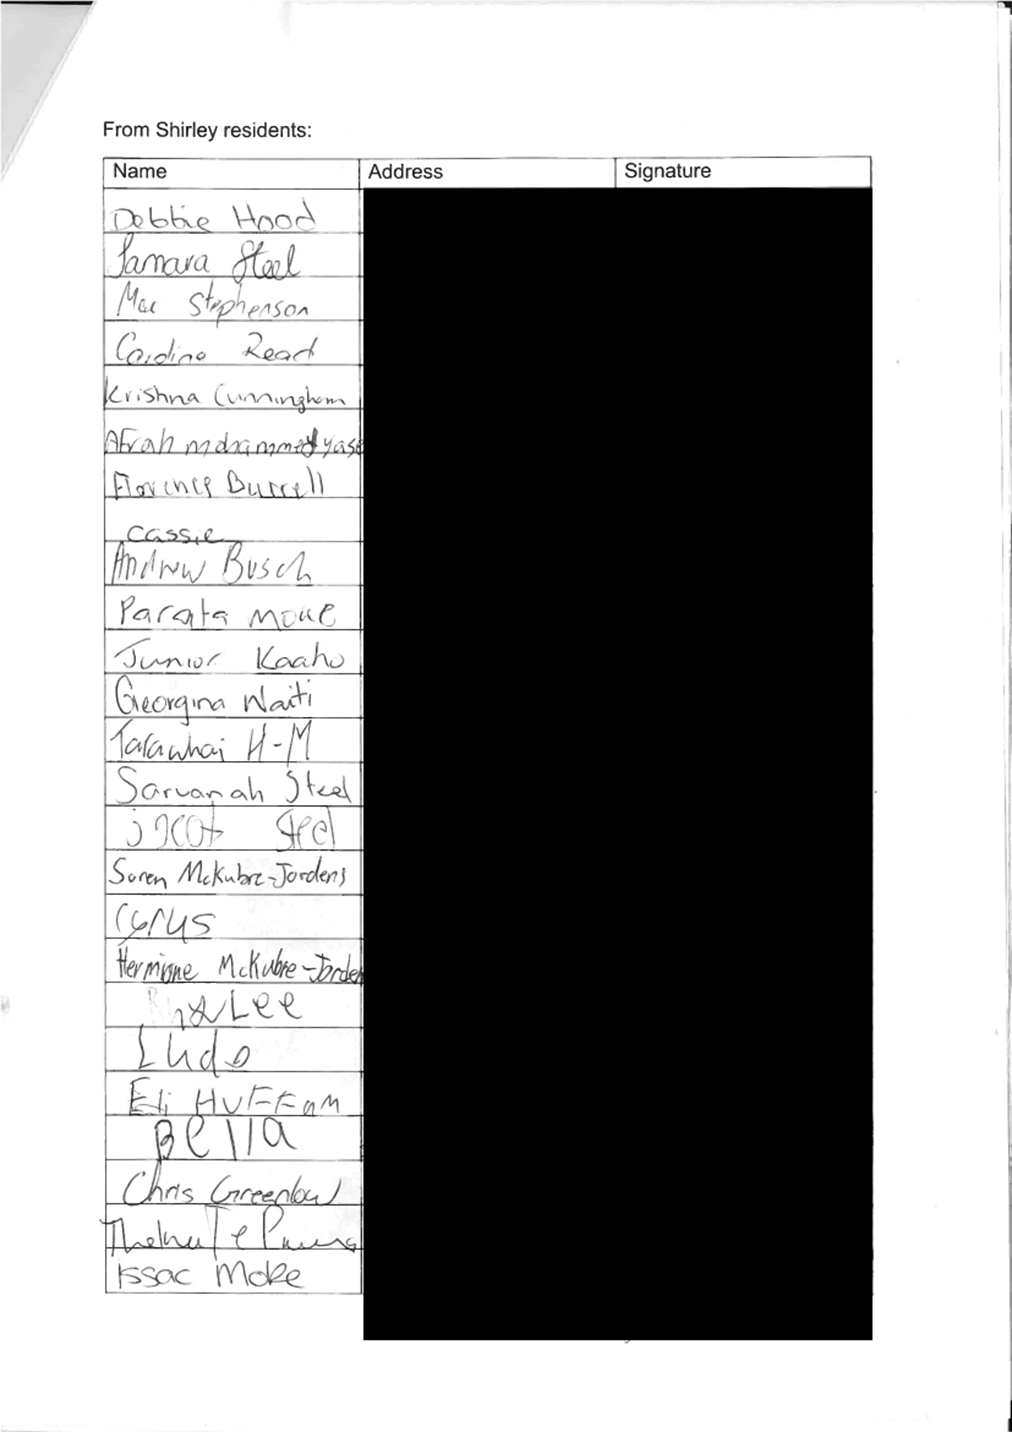 From Shirley residents:
Name Address Signature
Debbie Hood
Tamara Steel
Mac Stephenson
Caroline Read
Krishna Cunningham
Afrah mohammed yas
Florence Burrell
cassie
Andrew Busch
Parata Moke
Junior Kaaho
Georgina Waiti
Tarawhai H-M
Sarvanah Steel
Steel
Soren McKubre-Jordens
Cyrus
Hermione McKubre-Jorden
Lee
Ludo
Eli HuFFam
Bella
Chris Greenlow
Te
Issac Moke